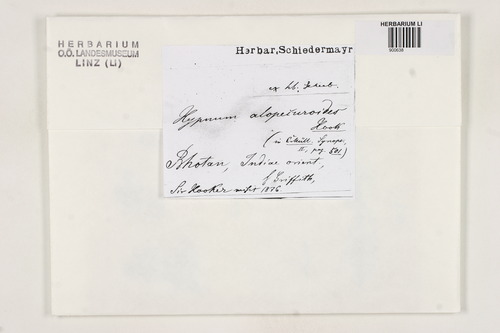 HERBARIUM
O.Ö. LANDESMUSEUM
LINZ (LI)
HERBARIUM LI
Herbar, Schiedermayr
ex hb.
Hypnum alopecuroides
Hook
(in Synops.
II. pag. 521.)
Bhotan, Indiae orient.,
Griffith,
Sir Hooker misit 1876